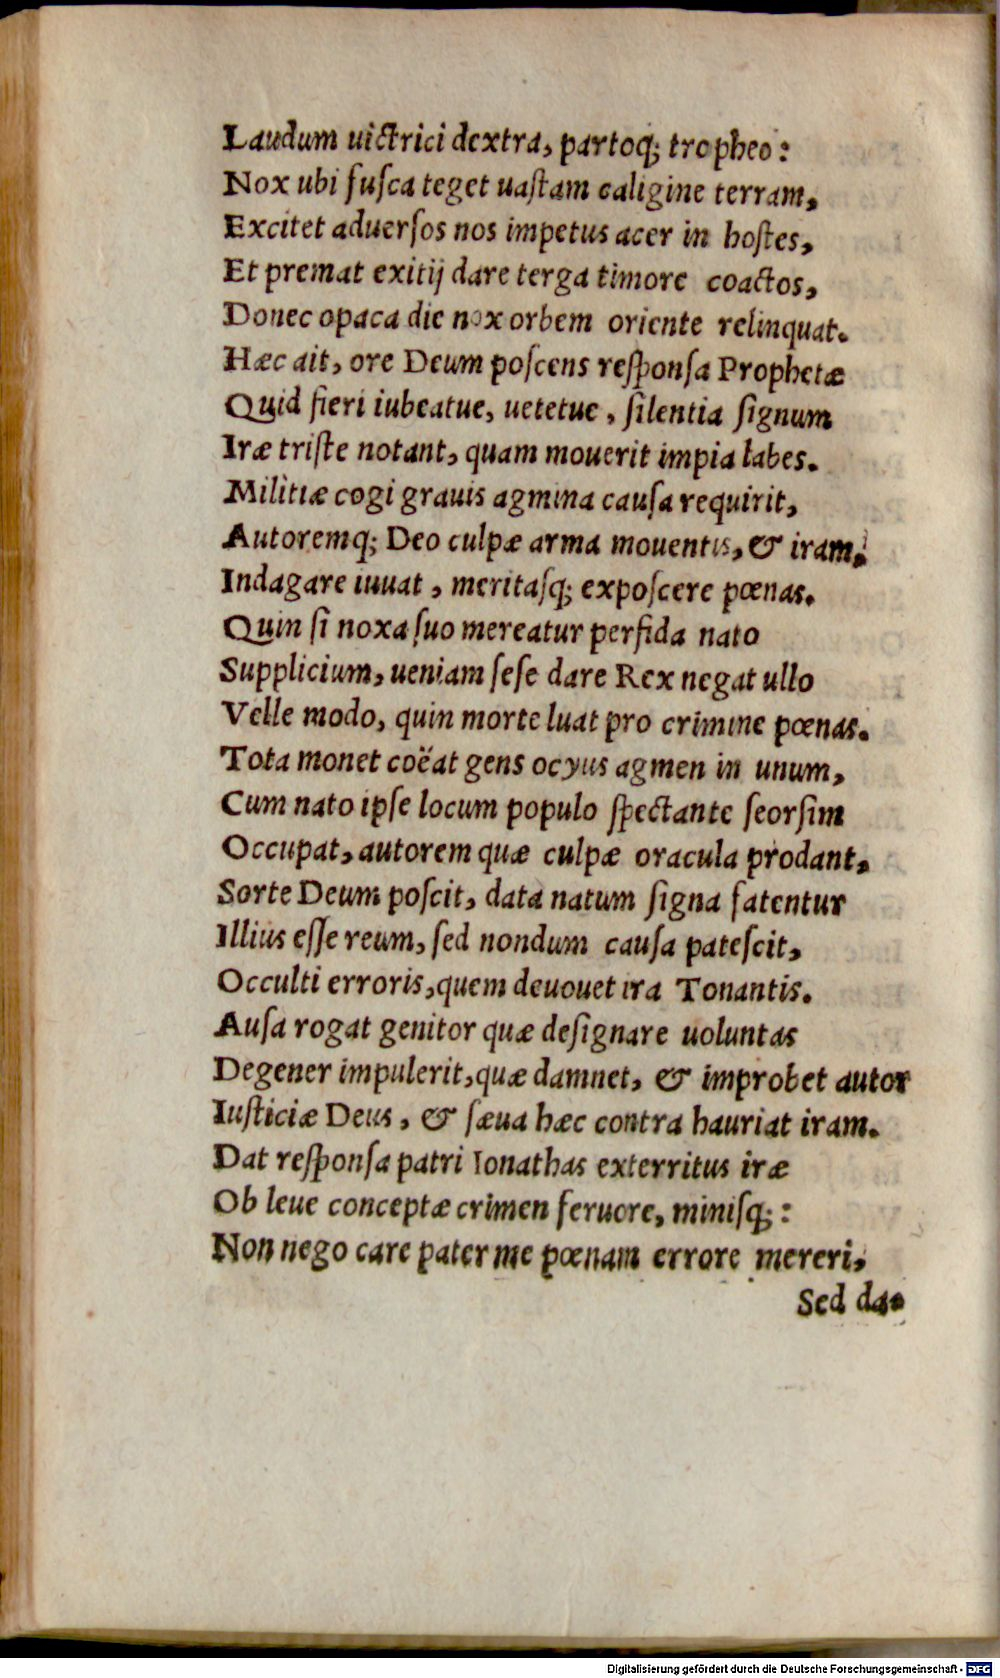 Laudum uictrici dextra, partoq; tropheo:
Nox ubi fuſca teget uaſtam caligine terram,
Excitet aduerſos nos impetus acer in hoſtes,
Et premat exitij dare terga timore coactos,
Donec opaca die nox orbem oriente relinquat.
Hæc ait, ore Deum poſcens reſponſa Prophetæ
Quid fieri iubeatue, uetetue, ſilentia ſignum
Iræ triſte notant, quam mouerit impia labes.
Militiæ cogi grauis agmina cauſa requirit,
Autoremq; Deo culpæ arma mouentis, & iram,
Indagare iuuat, meritaſq; expoſcere pœnas.
Quin ſi noxa ſuo mereatur perfida nato
Supplicium, ueniam ſeſe dare Rex negat ullo
Velle modo, quin morte luat pro crimine pœnas.
Tota monet coëat gens ocyus agmen in unum,
Cum nato ipſe locum populo ſpectante ſeorſim
Occupat, autorem quæ culpæ oracula prodant,
Sorte Deum poſcit, data natum ſigna fatentur
Illius eſſe reum, ſed nondum cauſa pateſcit,
Occulti erroris, quem deuouet ira Tonantis.
Auſa rogat genitor quæ deſignare uoluntas
Degener impulerit, quæ damnet, & improbet autor
Iuſticiæ Deus, & ſæua hæc contra hauriat iram.
Dat reſponſa patri Ionathas exterritus iræ
Ob leue conceptæ crimen feruore, miniſq;:
Non nego care pater me pœnam errore mereri,
Sed da-
Digitalisierung gefördert durch die Deutsche Forschungsgemeinschaft - DFG